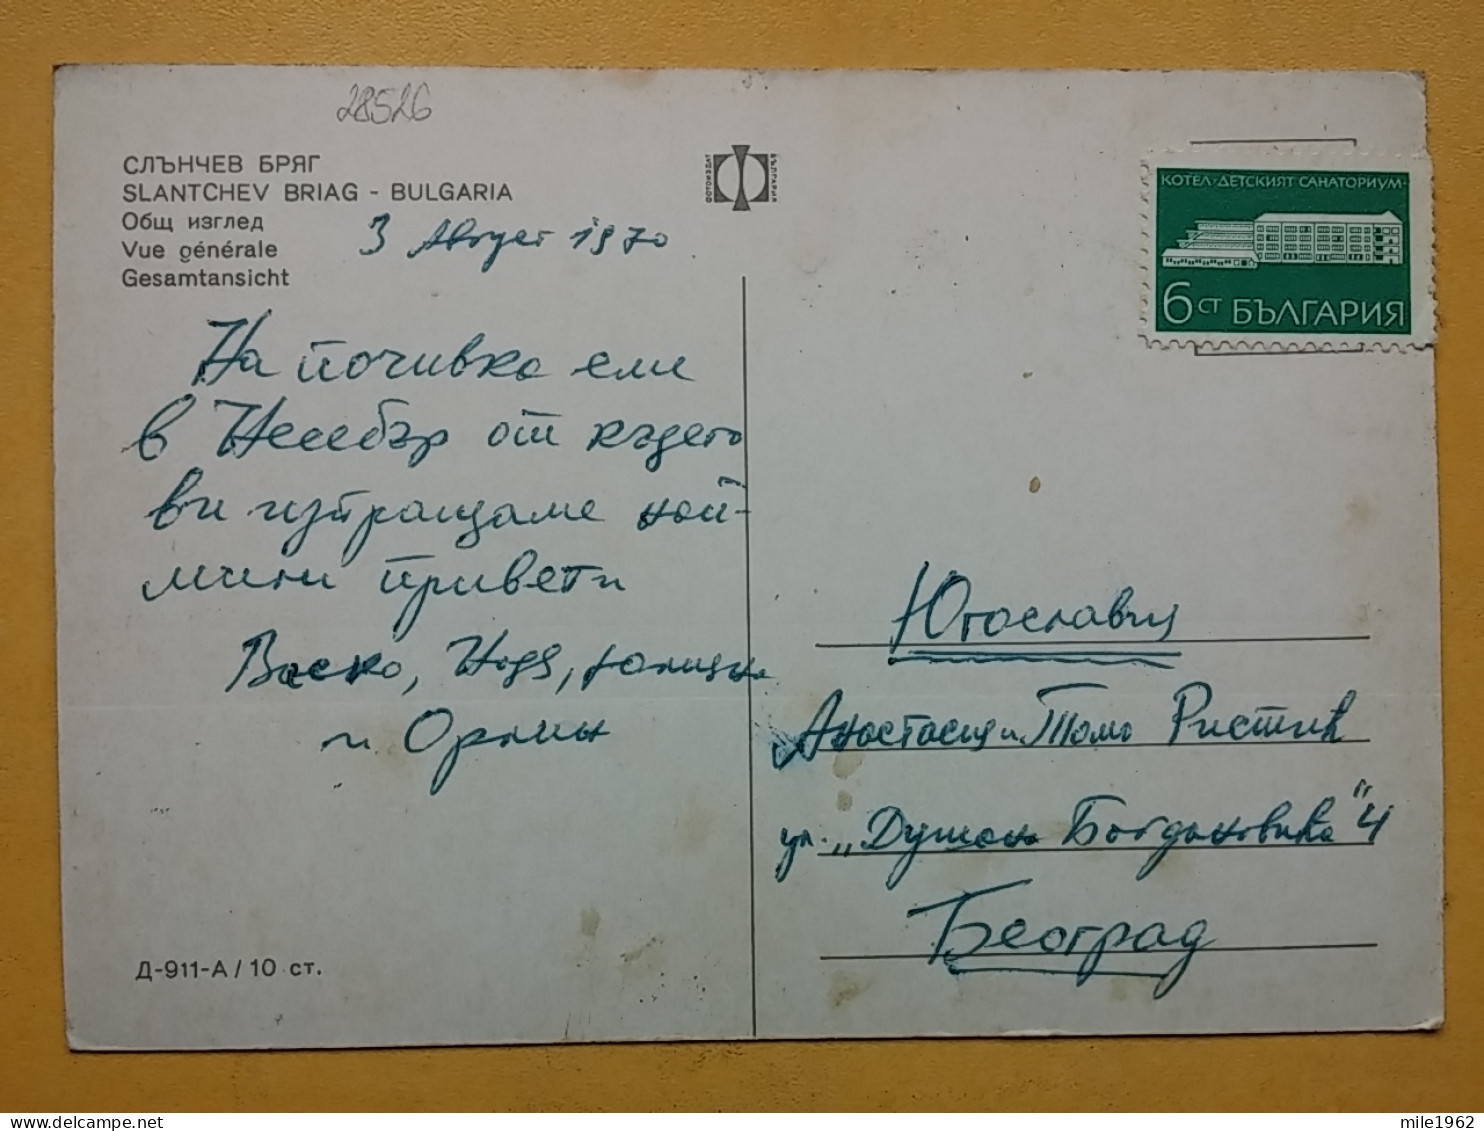 28526
СЛЪНЧЕВ БРЯГ
SLANTCHEV BRIAG - BULGARIA
Общ изглед
Vue générale
Gesamtansicht
3 Август 1970
ФОТОИЗДАТ
БЪЛГАРИЯ
КОТЕЛ·ДЕТСКИЯТ САНАТОРИУМ·
6 СТ БЪЛГАРИЯ
На почивка сме
в Несебър от където
ви изпращаме най-
мили привети
Васко, Надя,
и Орлин
Д-911-А / 10 ст.
Югославия
Анастасия и Тома Ристић
ул. „Душана Богдановића" 4
Београд
mile1962